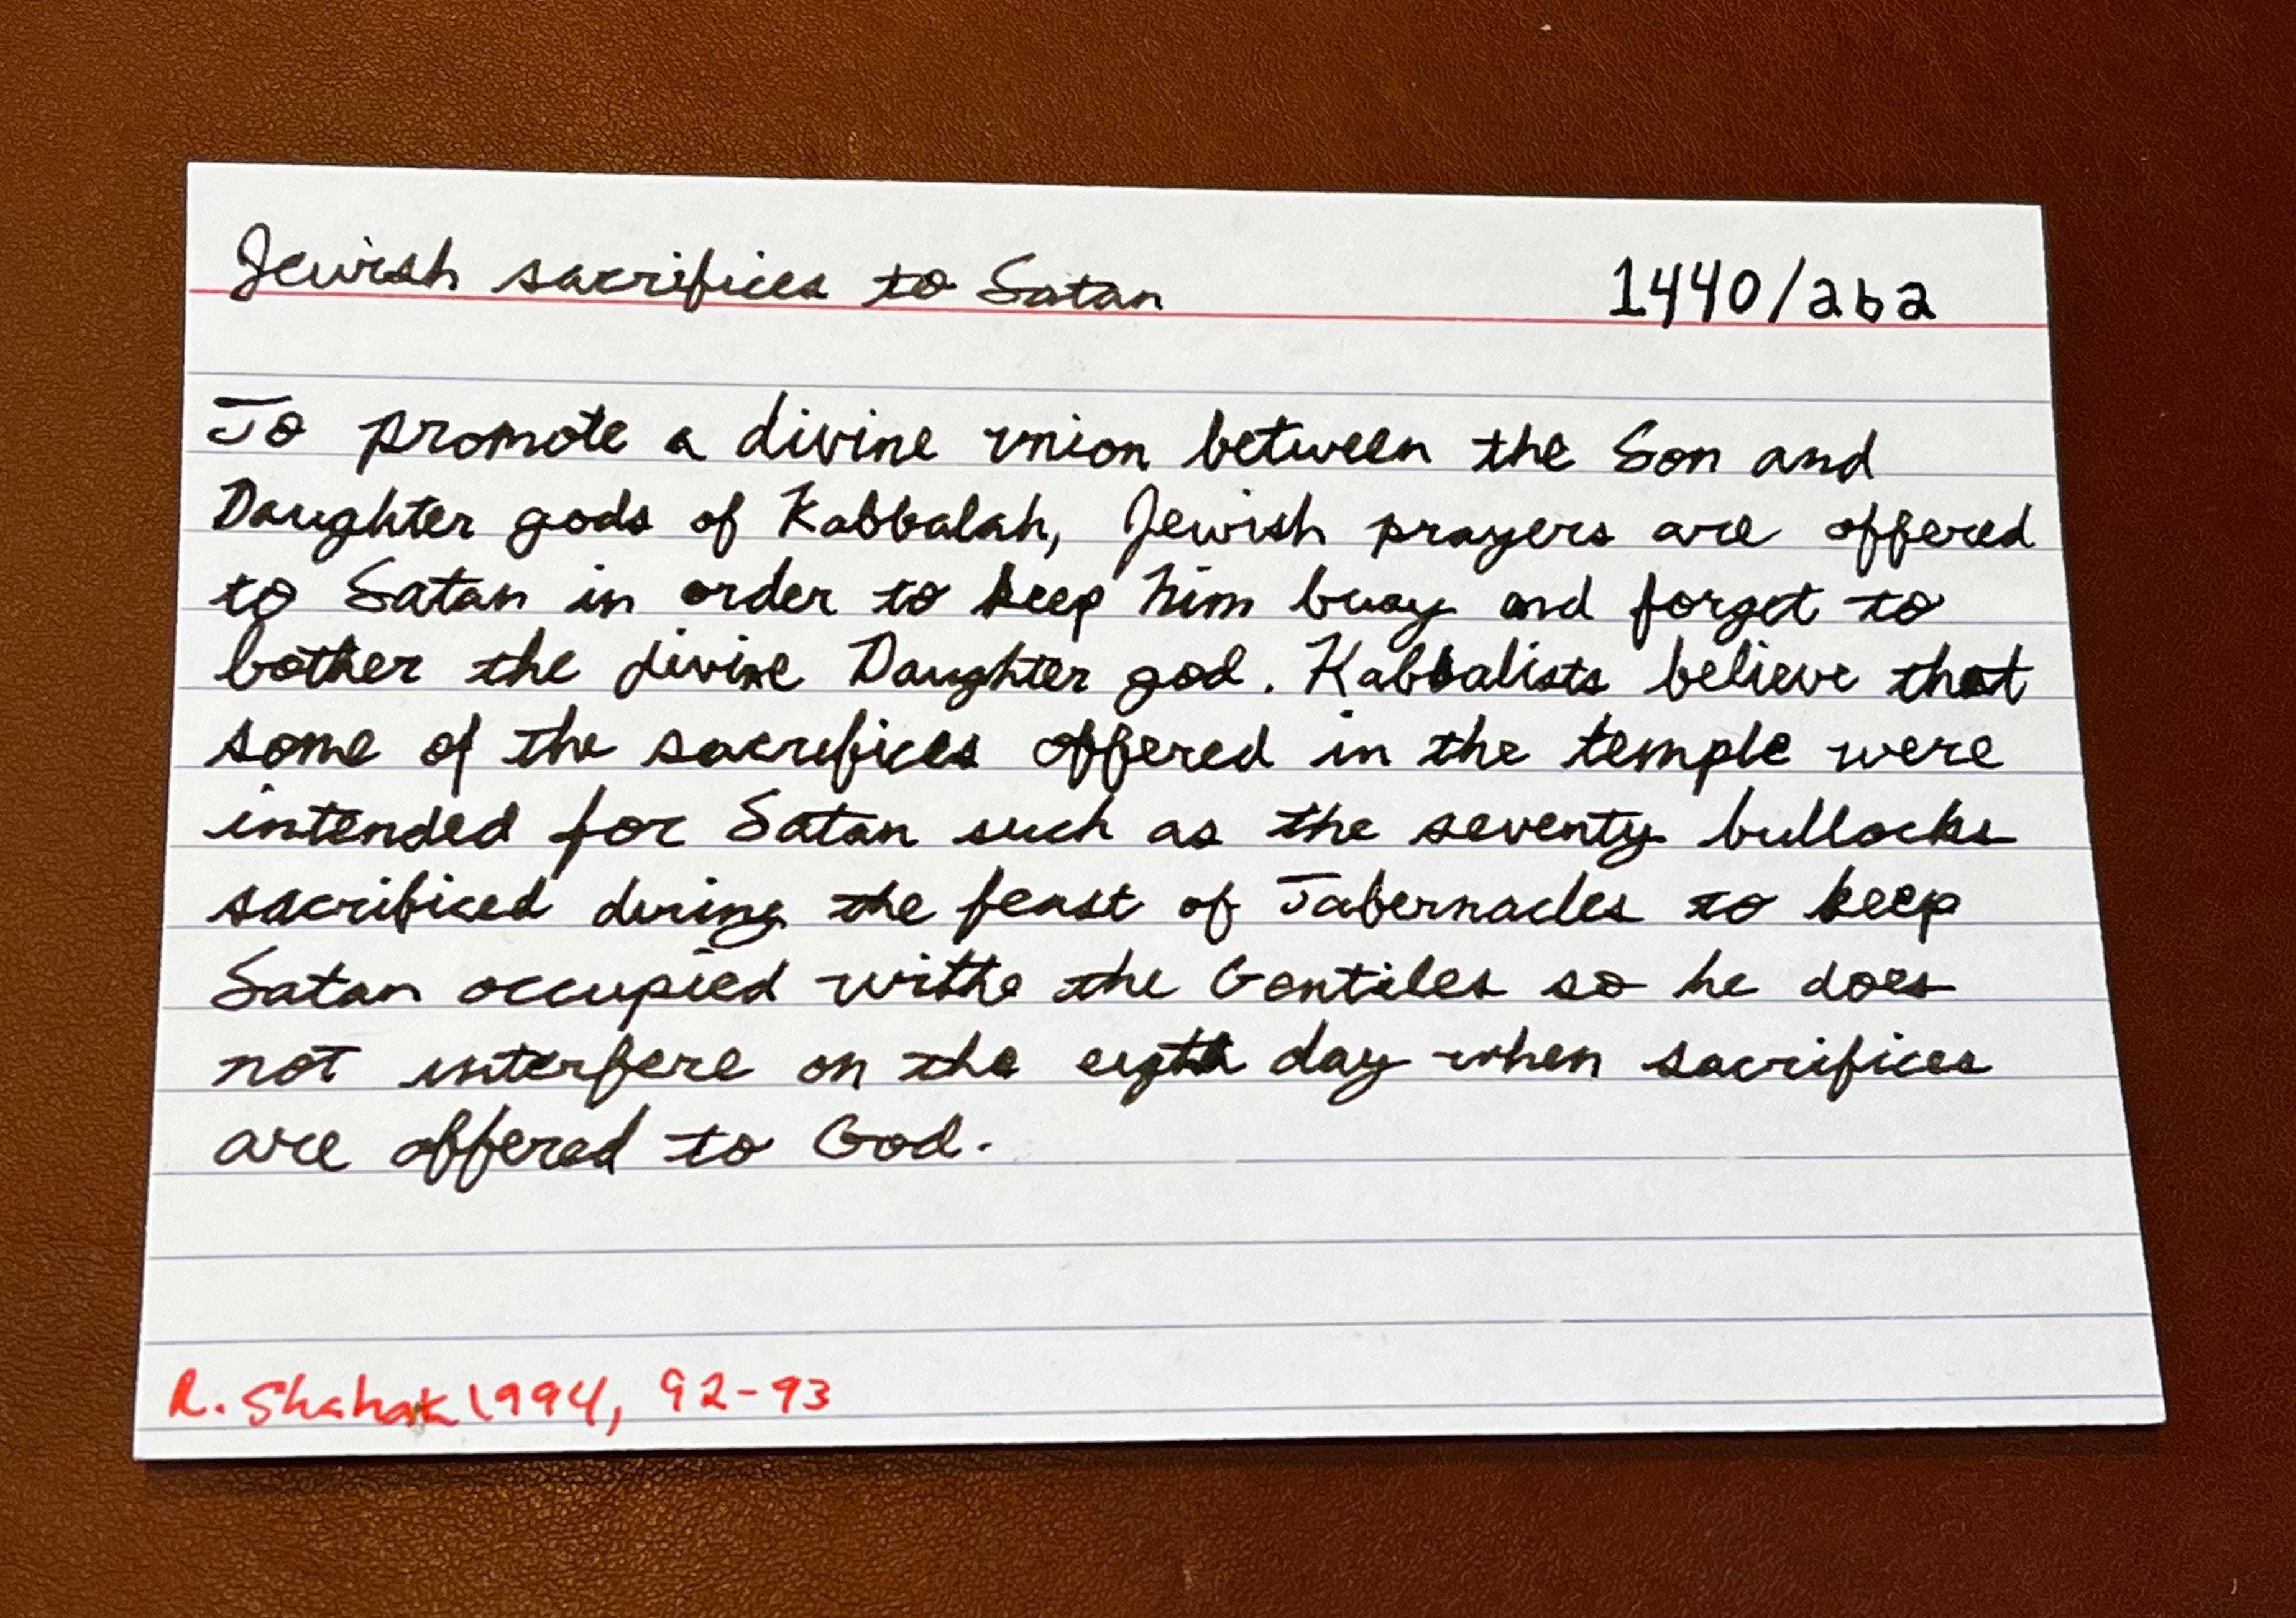 Jewish sacrifices to Satan 1440/aba
To promote a divine union between the Son and
Daughter gods of Kabbalah, Jewish prayers are offered
to Satan in order to keep him busy and forget to
bother the divine Daughter god. Kabbalists believe that
some of the sacrifices offered in the temple were
intended for Satan such as the seventy bullocks
sacrificed during the feast of Tabernacles to keep
Satan occupied withe the Gentiles so he does
not interfere on the eigth day when sacrifices
are offered to God.
R. Shahak 1994, 92-93